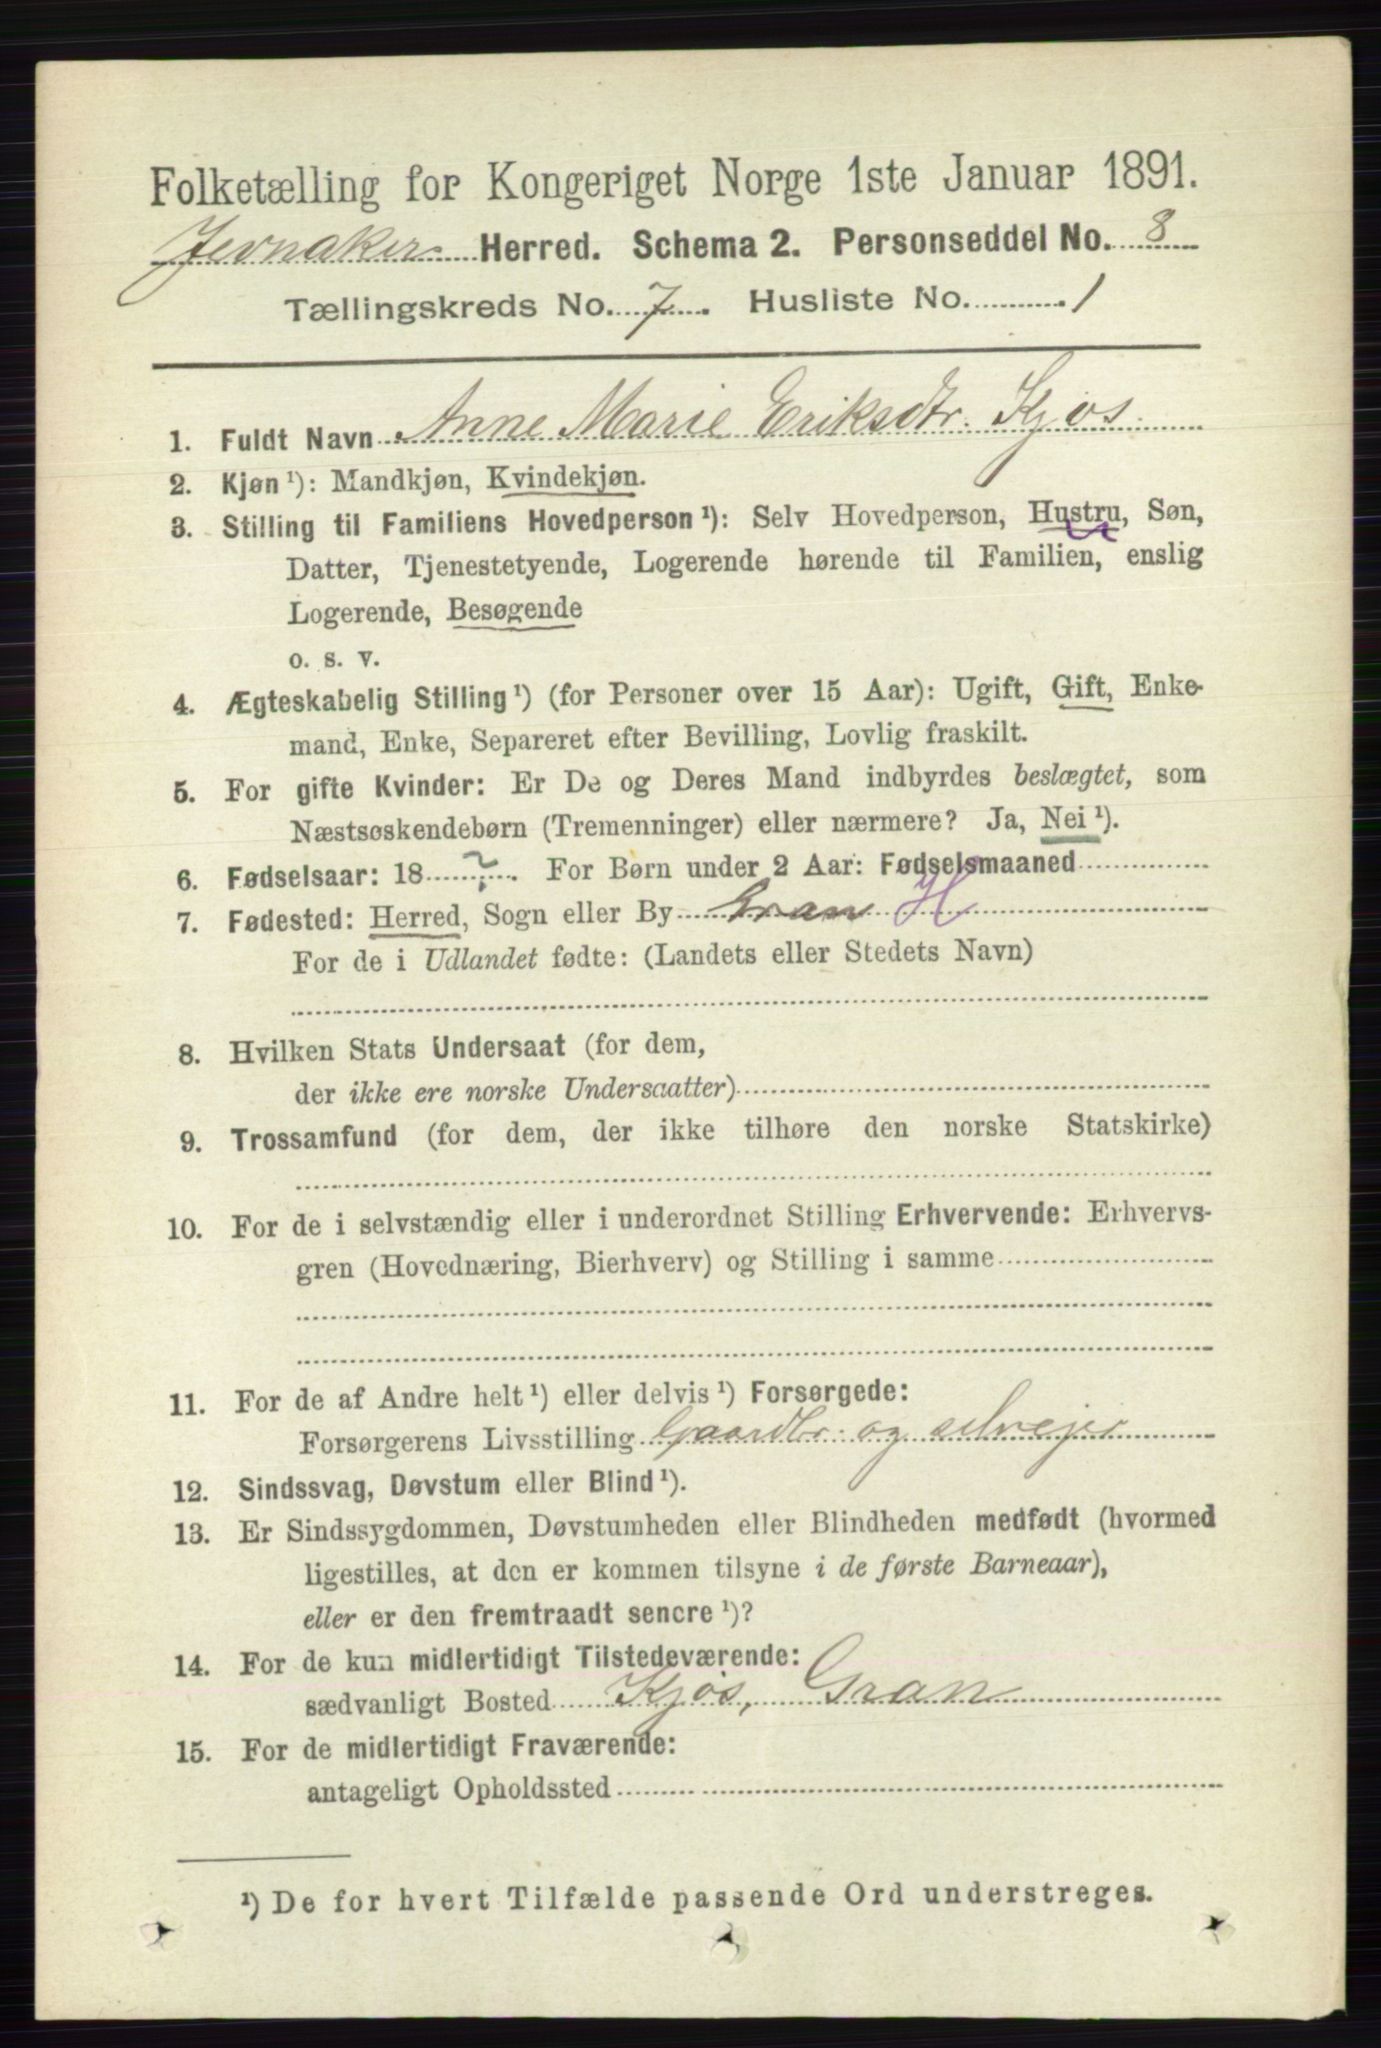 Folketælling for Kongeriget Norge 1ste Januar 1891.
Jevnaker Herred. Schema 2. Personseddel No. 8
Tællingskreds No. 7. Husliste No. 1
1. Fuldt Navn Anne Marie Eriksdtr. Kjøs
2. Kjøn ¹): Mandkjøn, Kvindekjøn.
3. Stilling til Familiens Hovedperson ¹): Selv Hovedperson, Hustru, Søn,
Datter, Tjenestetyende, Logerende hørende til Familien, enslig
Logerende, Besøgende
o. s. v.
4. Ægteskabelig Stilling ¹) (for Personer over 15 Aar): Ugift, Gift, Enke-
mand, Enke, Separeret efter Bevilling, Lovlig fraskilt.
5. For gifte Kvinder: Er De og Deres Mand indbyrdes beslægtet, som
Næstsøskendebørn (Tremenninger) eller nærmere? Ja, Nei ¹).
6. Fødselsaar: 18 ?. For Børn under 2 Aar: Fødselsmaaned
7. Fødested: Herred, Sogn eller By Gran H
For de i Udlandet fødte: (Landets eller Stedets Navn)
8. Hvilken Stats Undersaat (for dem,
der ikke ere norske Undersaatter)
9. Trossamfund (for dem, der ikke tilhøre den norske Statskirke)
10. For de i selvstændig eller i underordnet Stilling Erhvervende: Erhvervs-
gren (Hovednæring, Bierhverv) og Stilling i samme
11. For de af Andre helt ¹) eller delvis ¹) Forsørgede:
Forsørgerens Livsstilling Gaardbr. og selvejer
12. Sindssvag, Døvstum eller Blind ¹).
13. Er Sindssygdommen, Døvstumheden eller Blindheden medfødt (hvormed
ligestilles, at den er kommen tilsyne i de første Barneaar),
eller er den fremtraadt senere ¹)?
14. For de kun midlertidigt Tilstedeværende:
sædvanligt Bosted Kjøs, Gran
15. For de midlertidigt Fraværende:
antageligt Opholdssted
¹) De for hvert Tilfælde passende Ord understreges.